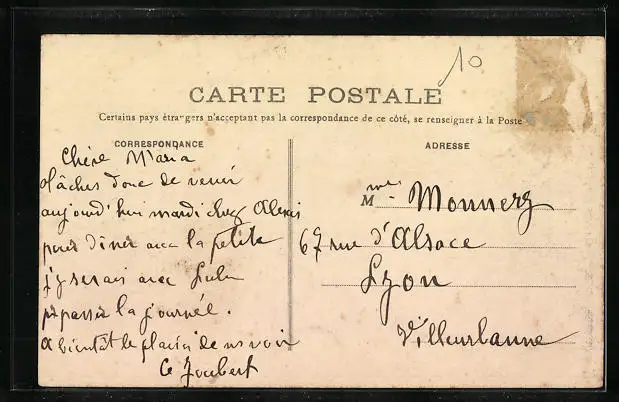 10
CARTE POSTALE
Certains pays étrangers n'acceptant pas la correspondance de ce côté, se renseigner à la Poste
CORRESPONDANCE
Chère Maria
tâches donc de venir
aujourd'hui mardi chez Alexis
pour diner avec la petite
j'y serais avec Lulu
pr passer la journée.
A bientôt le plaisir de vs voir
C Joubert
ADRESSE
Mme Monnery
67 rue d'Alsace
Lyon
Villeurbanne